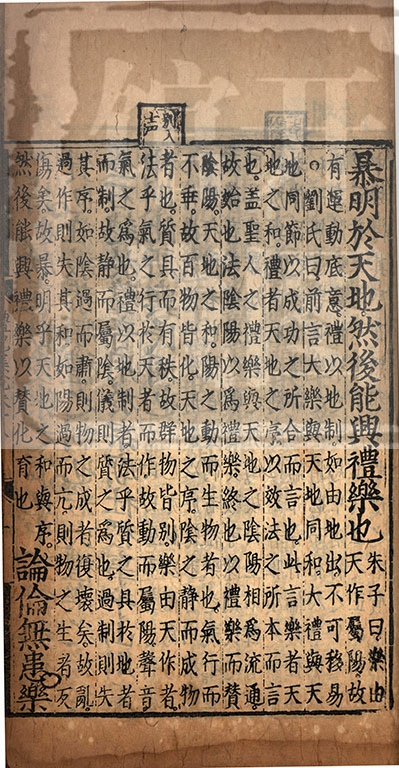 暴明於天地然後能興禮樂也朱子曰樂由
天作屬陽故
有運動底意禮以地制如由地出不可移易
。劉氏曰前言大樂與天地同和大禮與天
地同節以成功之所合而言也此言樂者天
地之和禮者天地之序以效法之所本而言
也。蓋聖人之禮樂與天地之陰陽相爲流通。
故始也法陰陽以爲禮樂。終也以禮樂而贊
陰陽。天地之和。陽之動而生物者也。氣行而
不乖。故百物皆化。天地之序。陰之靜而成物
者也。質具而有秩。故群物皆別。樂由天作者。
法乎氣之行於天者而作。故動而屬陽。聲音
氣之爲也。禮以地制者。法乎質之具於地者
而制。故靜而屬陰。儀則質之爲也。過制則失
其序。如陰過而肅。則物之成者復壞矣。故亂
過作則失其和。如陽過而亢。則物之生者反
傷矣。故暴。明乎天地之和與序。
然後能興禮樂以贊化育也
論倫無患樂